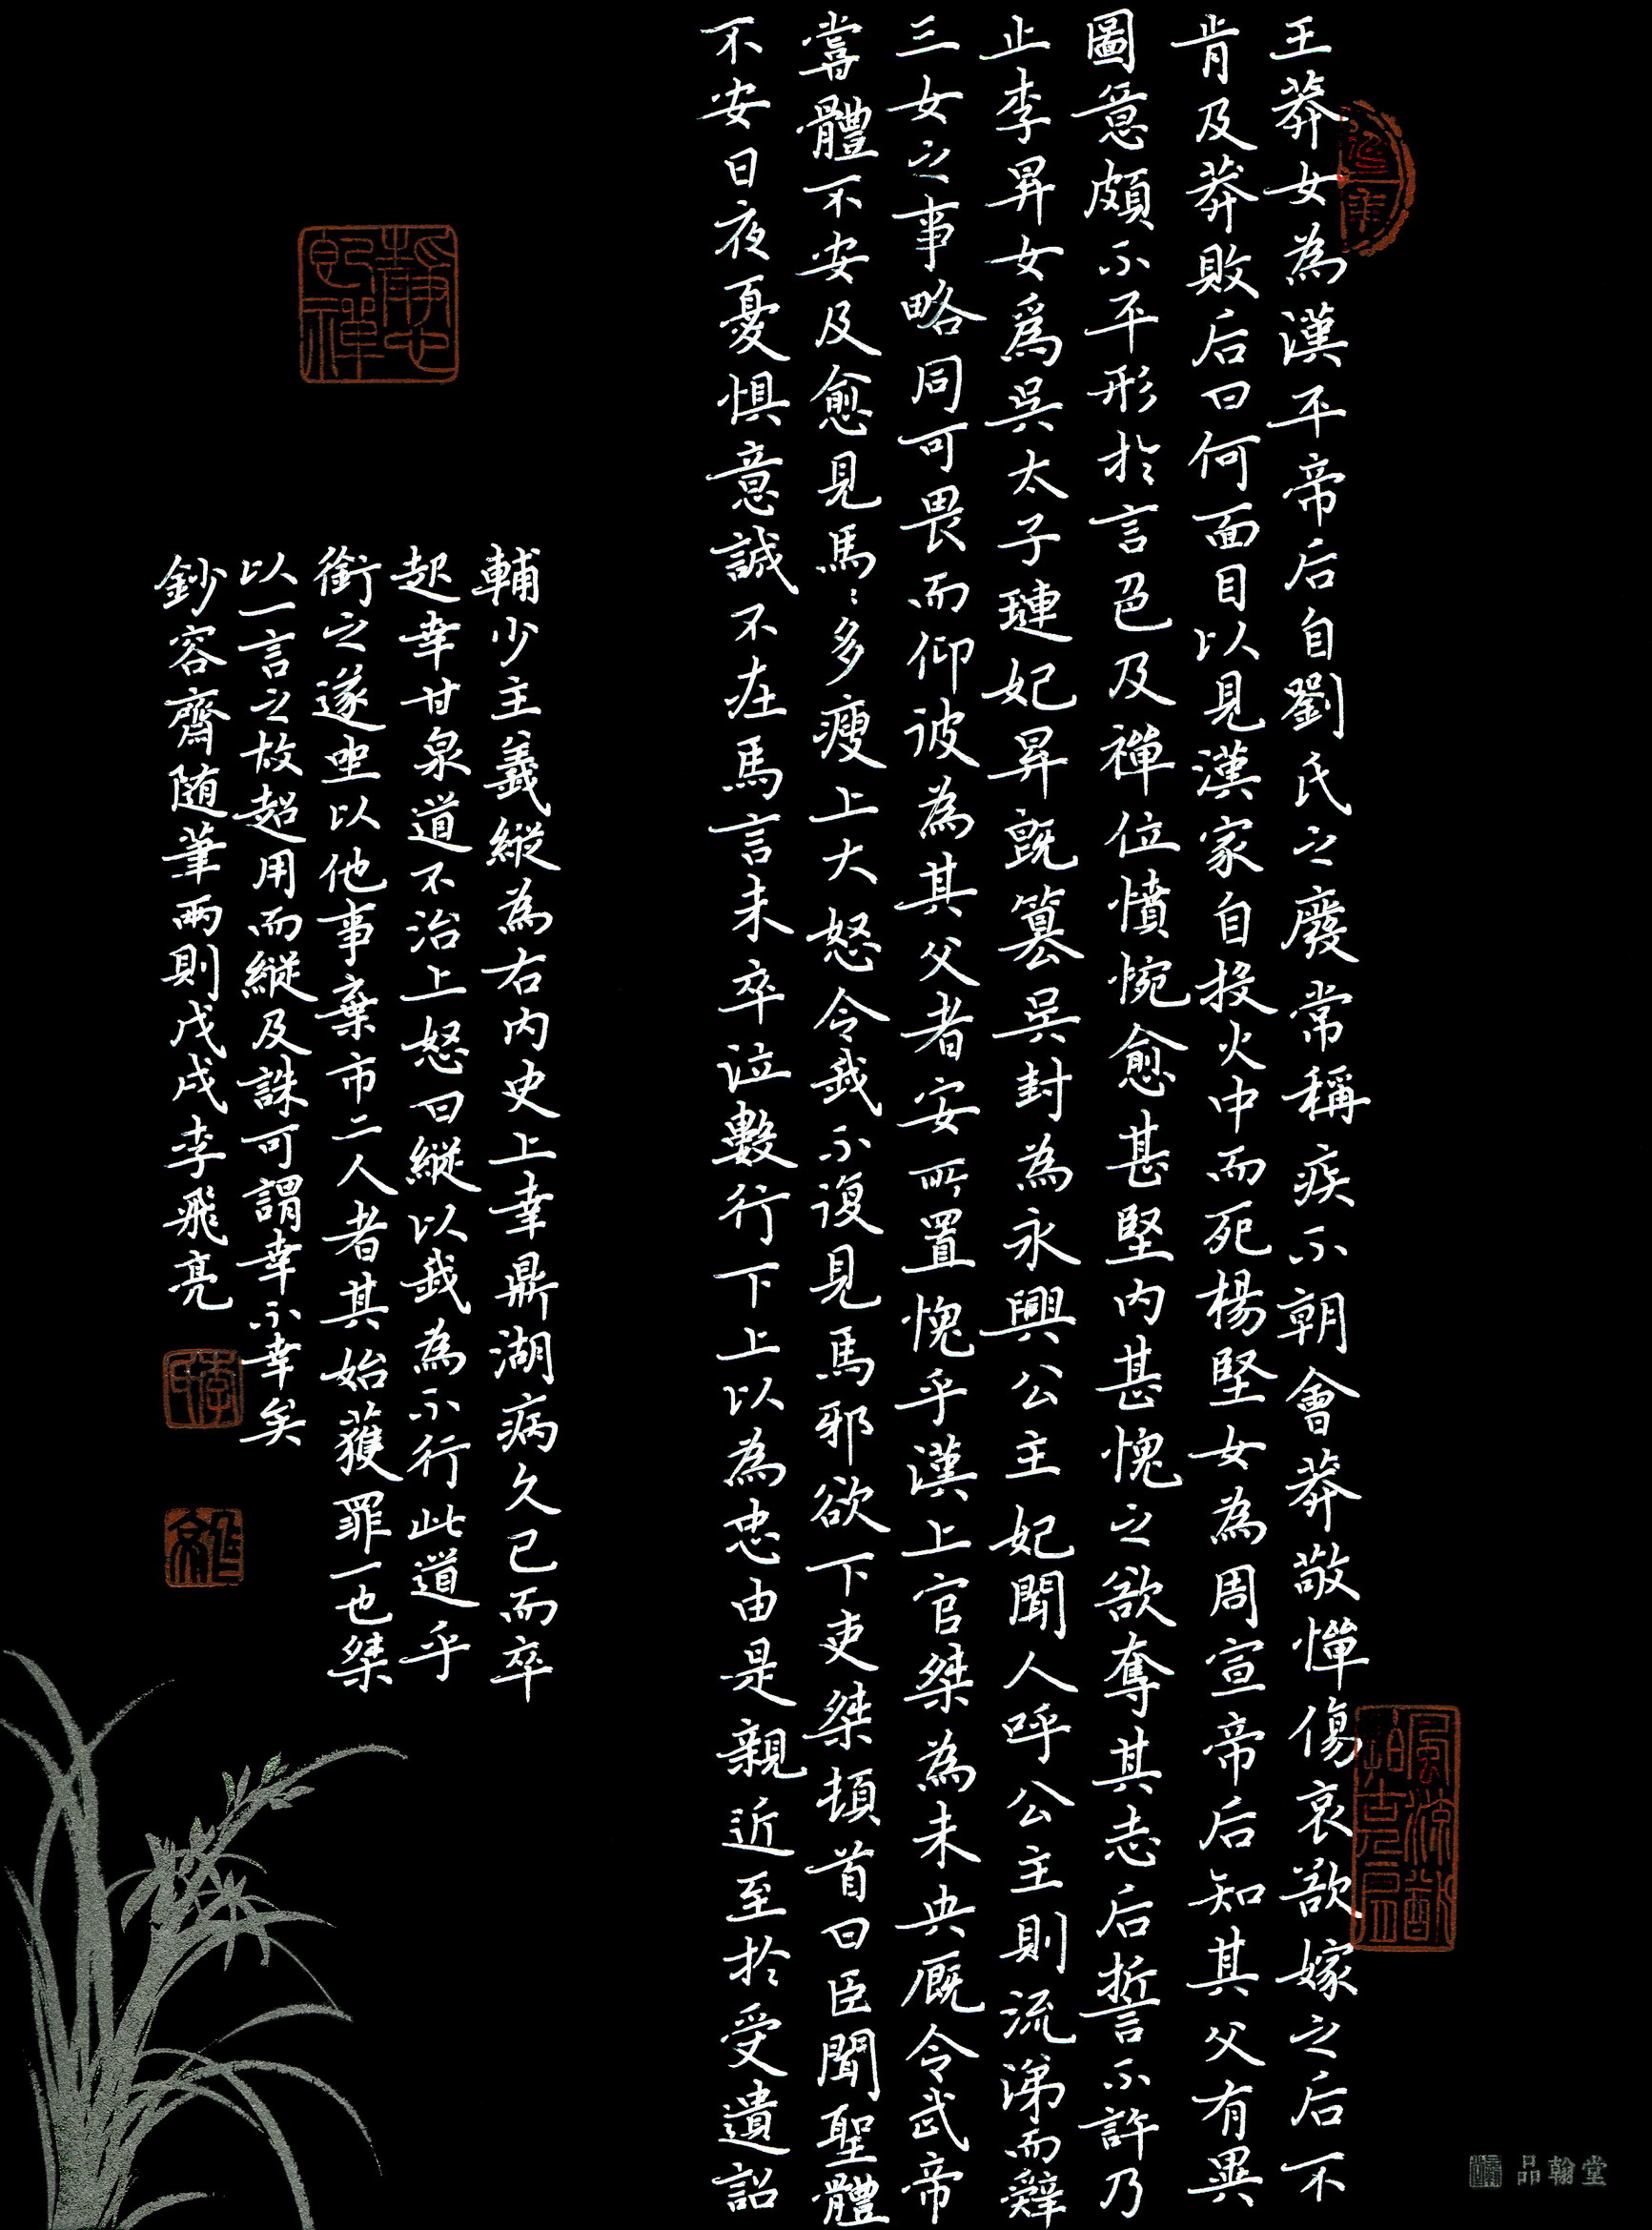 王莽女為漢平帝后自劉氏之廢常稱疾不朝會莽敬憚傷哀欲嫁之后不
肯及莽敗后曰何面目以見漢家自投火中而死楊堅女為周宣帝后知其父有異
圖意頗不平形於言色及禪位憤惋愈甚堅內甚愧之欲奪其志后誓不許乃
止李昇女爲吳太子璉妃昇既篡吳封為永興公主妃聞人呼公主則流涕而辭
三女之事略同可畏而仰彼為其父者安所置愧乎漢上官桀為未央廄令武帝
嘗體不安及愈見馬馬多瘦上大怒令我不復見馬邪欲下吏桀頓首曰臣聞聖體
不安日夜憂惧意誠不在馬言未卒泣數行下上以為忠由是親近至於受遺詔
輔少主義縱為右內史上幸鼎湖病久已而卒
起幸甘泉道不治上怒曰縱以我為不行此道乎
銜之遂坐以他事棄市二人者其始獲罪一也桀
以一言之故超用而縱及誅可謂幸不幸矣
鈔容齋随筆兩則戊戌李飛亮
靜心
品翰堂